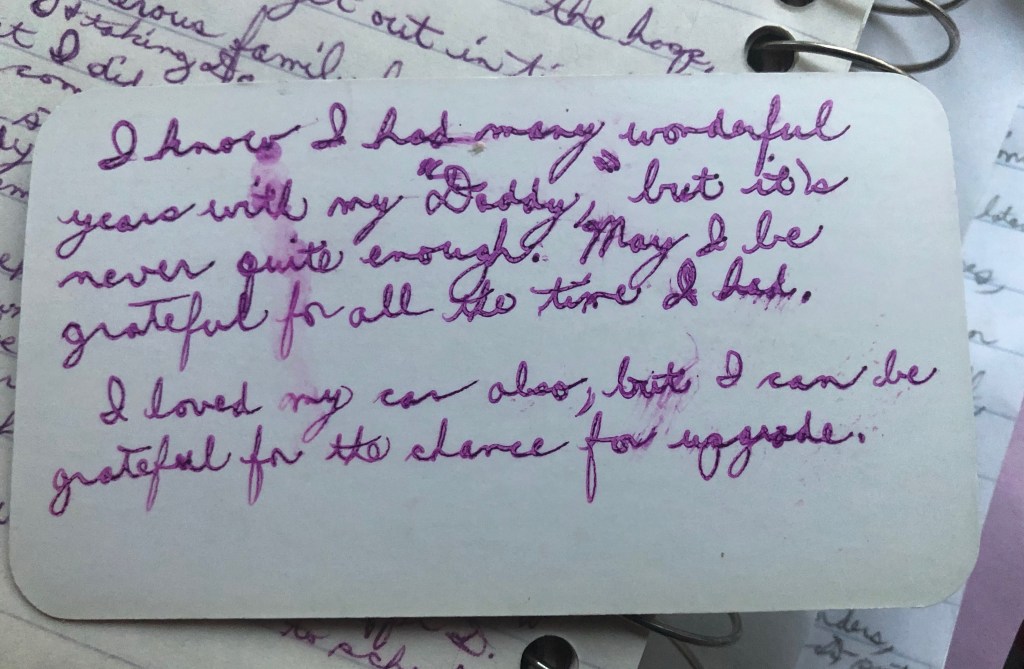 the hoop,
get out in
family
& taking
I know I had many wonderful
years with my "Daddy," but it's
never quite enough. May I be
grateful for all the time I had.
I loved my car also, but I can be
grateful for the chance for upgrade.